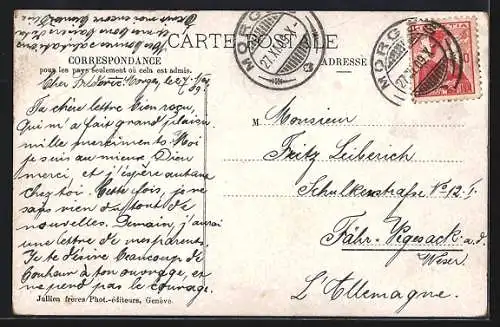 CARTE POSTALE
CORRESPONDANCE
pour les pays seulement où cela est admis.
ADRESSE
MORGES
27.XI.09.X-
MORGES
27.XI.09.X-
Cher Morges, le 27 Nov
09.
Ta chère lettre bien reçu,
Qui m'a fait grand plaisir
mille merciments. Moi
je suis au mieux. Dieu
merci, et j'espère autant
chez toi. Cette fois, je ne
sais rien du tout de
nouvelles. Demain j'aurai
une lettre de mes parents.
Je te désire beaucoup de
bonheur à ton ouvrage, et
ne perd pas le courage.
M. Monsieur
Fritz Leiberich
Schulkerstrafse No 12. I.
Fähr-Vegesack a.d.
Weser
L'Allemagne.
Jullien frères/Phot.-éditeurs, Genève.